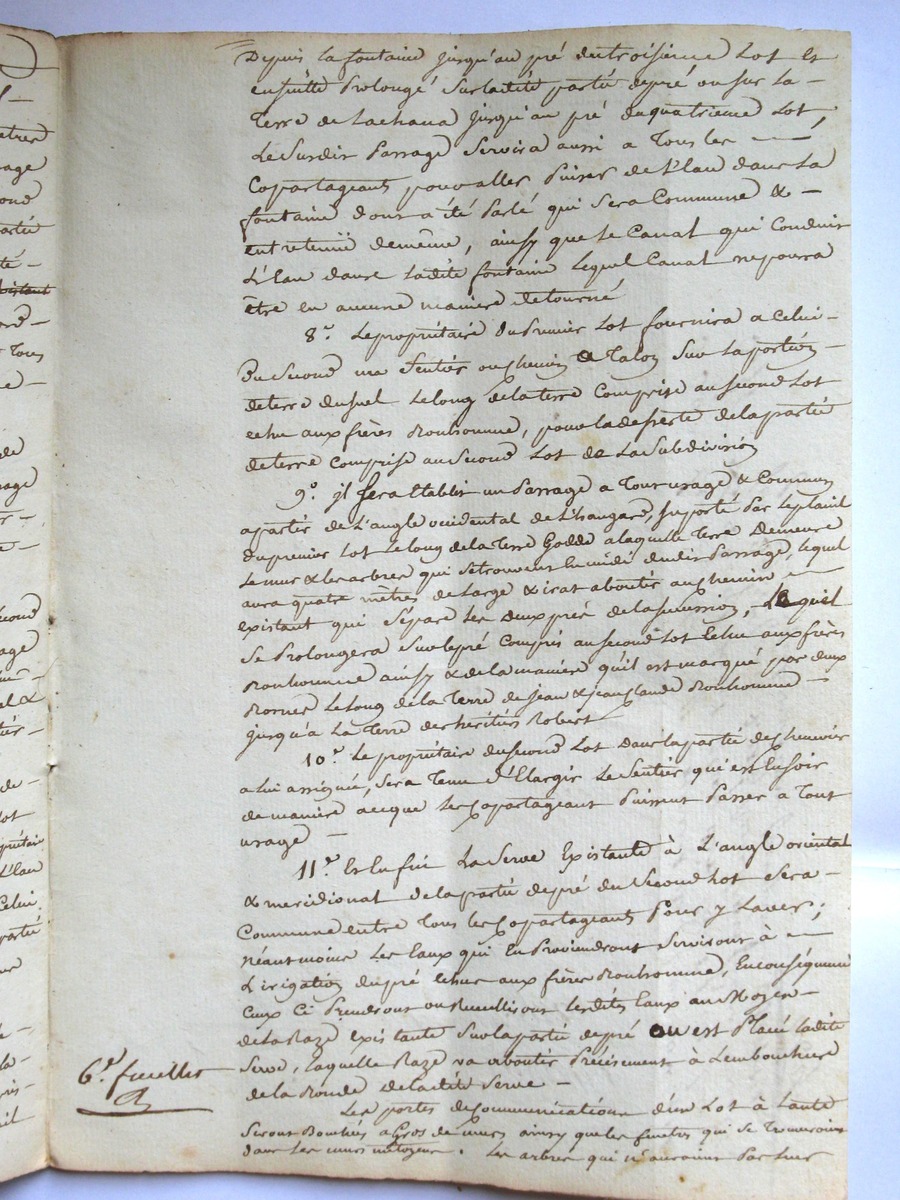 Depuis la fontaine jusqu'au pré du troisième Lot et
ensuite Prolongé Sur ladite partie de pré ou sur la
Terre de Lachana jusqu'au pré du quatrieme Lot,
Le Susdit Passage Servira aussi a Tous les
Copartageants pour aller Puiser de L'Eau dans La
fontaine dont a été Parlé qui Sera Commune &
entretenüe de même, ainsy que Le Canal qui Conduit
L'Eau dans Ladite fontaine Lequel Canal ne poura
être en aucune maniere détourné
8.° Le propriétaire du Premier Lot fournira a Celui
du Second un Sentier ou chemin de Talon Sur La portion
de terre du Suel Le long de la terre Comprise au Second Lot
echu aux frères Bonhomme, pour la desserte de la partie
de terre Comprise au Second Lot de La Subdivision
9.° jl Sera Etablit un Passage a Tout usage & Commun
a partir de L'angle occidental de L'hangard, Suporté Par
du premier Lot Le long de la Terre Godde a laquelle Terre Demeure
Le mur & les arbres qui se trouvent au midi dudit Passage, lequel
aura quatre mètres de Large & irat aboutir au chemin
existant qui Sépare Les deux prés de la Succession, Lequel
Se Prolongera Sur le pré Compris au Second Lot Echu aux frères
Bonhomme ainsy & de la maniere qu'il est marqué par deux
Bornes Le long de la Terre de Jean & jean Claude Bonhomme
jusqu'à La Terre des heritiers Robert
10.° Le propriétaire du Second Lot dans la partie de chenevier
a Lui assignée, Sera Tenu d'Elargir Le Sentier qui est En Soir
de maniere a ce que Les Copartageant Puissent Passer a Tout
usage
11.° Et Enfin La Serve Existante à L'angle oriental
& meridional de la partie de pré du Second Lot Sera
Commune entre Tous les Copartageants Pour y Laver,
néantmoins Les Eaux qui En Proviendront Serviront à
L'irigation du pré Echu aux frères Bonhomme, En conséquence
Ceux Ci Prendront ou Recuilliront Lesdites Eaux au Moyen
de la Raze Existante Sur la partie de pré ou est Placée Ladite
Serve, Laquelle Raze va aboutir Précisement à L'embouchure
de la Bonde de ladite Serve
Les portes de Communication d'un Lot à L'autre
Seront Bouchées a Gros de murs ainsy que les fenetres qui Se Trouveront
dans Les murs mitoyens. Les arbres qui n'auroient Pas Leur
6.e feuillet